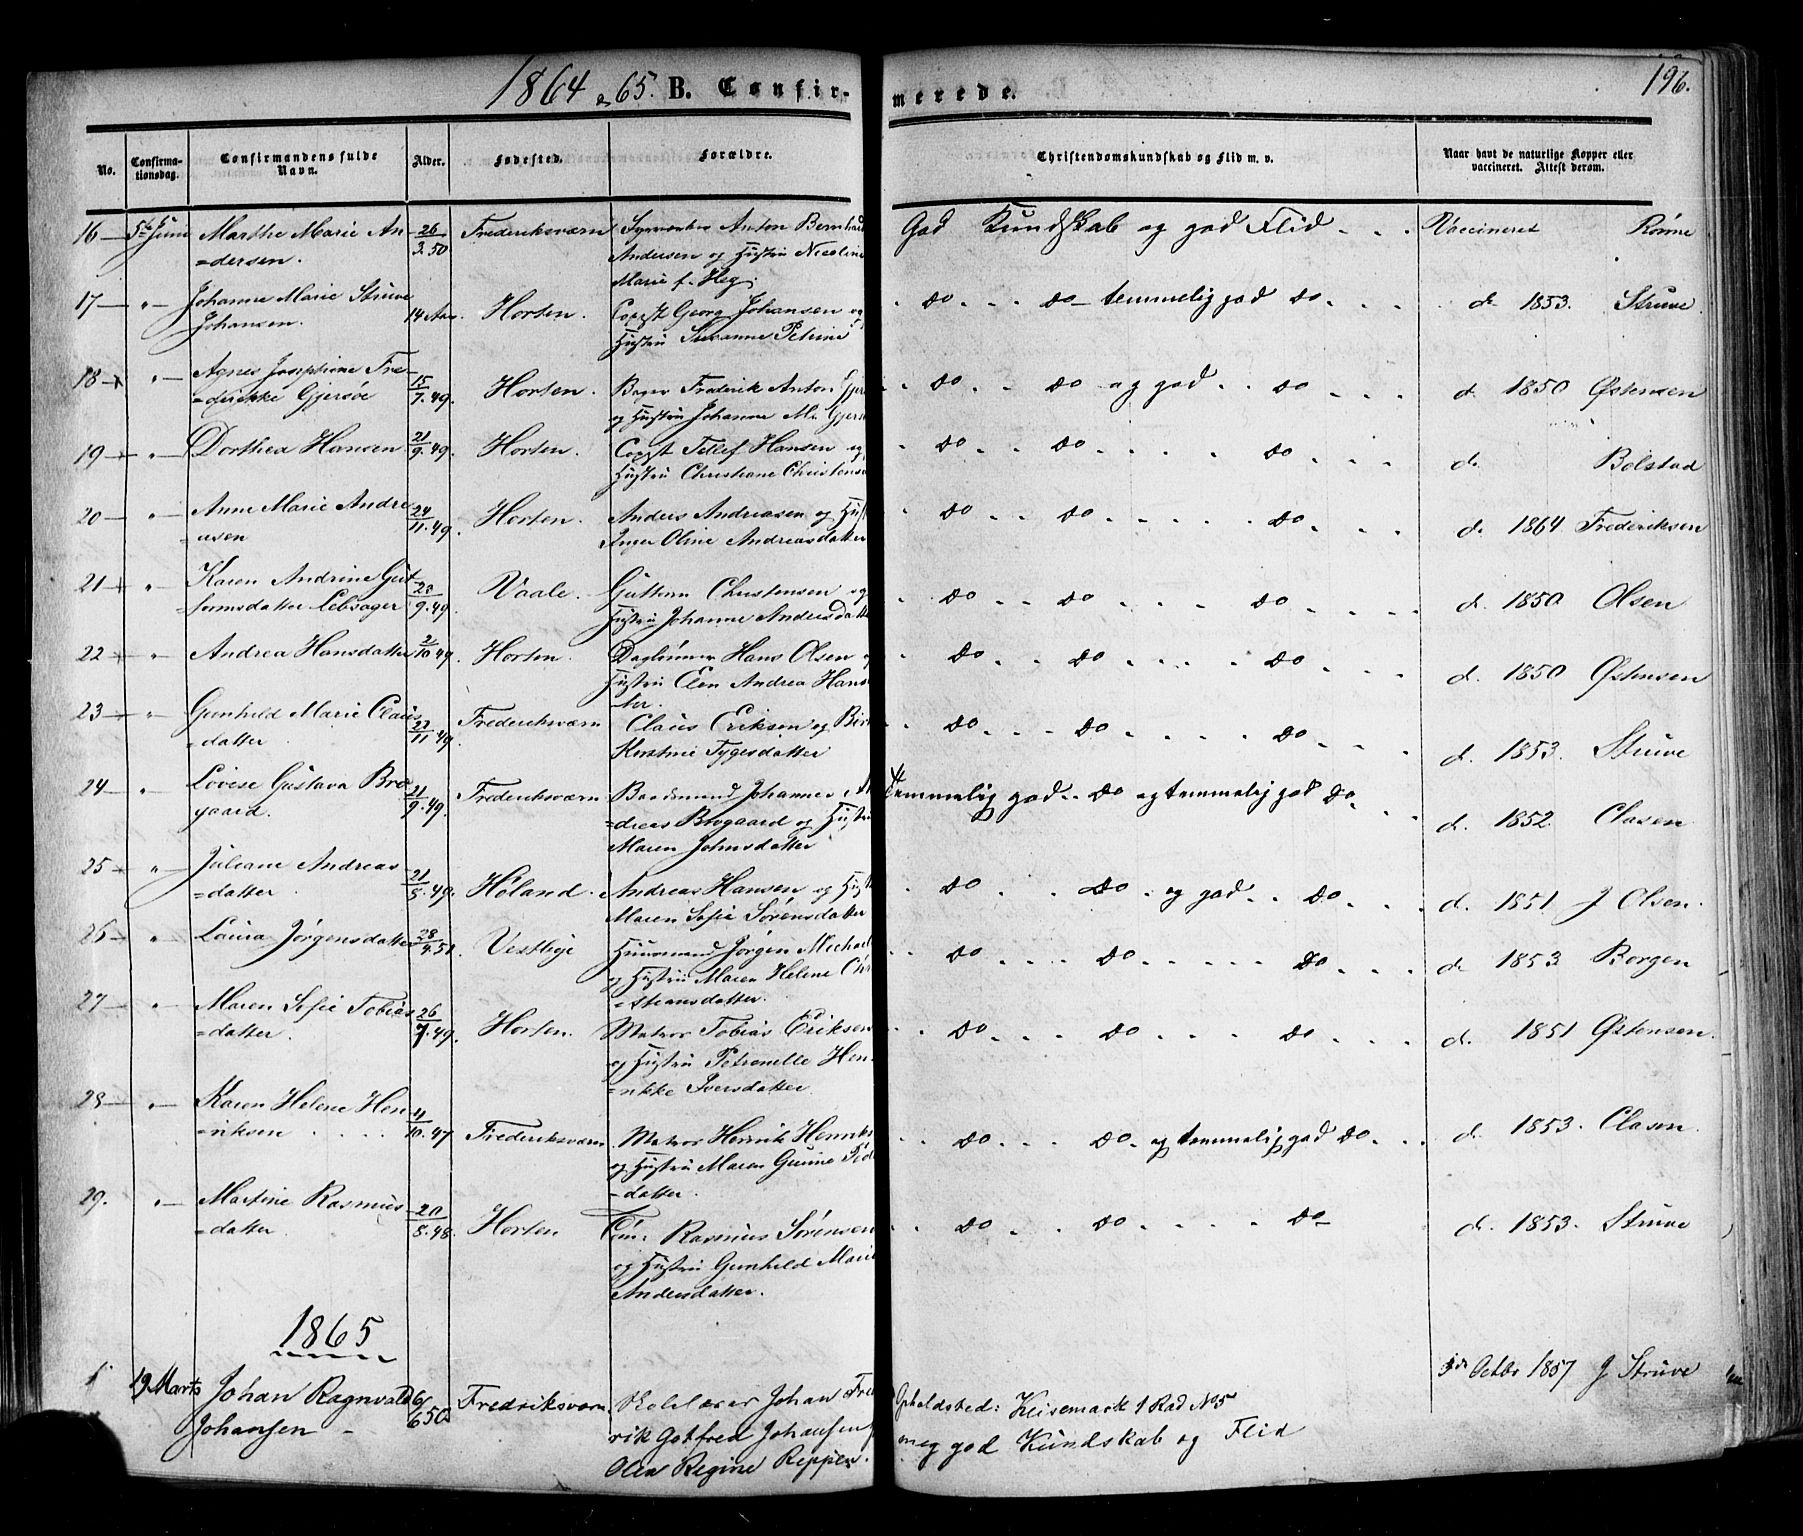 1864 & 65. B. Confirmerede. 196.
No. Confirmationsdag. Confirmandens fulde Navn. Alder. Fødested. Forældre. Christendomskundskab og Flid m. v. Naar havt de naturlige Kopper eller vaccineret. Attest derom.
16 5te Juni Marthe Marie An- 26/3.50 Frederiksværn Anton Bernhard God Kundskab og god Flid Vaccineret Rønne
=dersen. Andersen og Hustru Nicoline
Marie f. Heg.
17 " Johanne Marie Struve 14 Aar. Horten. Copst Georg Johansen og do do temmelig god do d. 1853. Struve
Johansen. Hustru Susanne Petrine
18 " Agnes Josephine Fre- 15/7.49. Horten. Bager Frederik Anton do do og god do d. 1850 Østensen
=derikke Gjersøe og Hustru Johanne M.
19 " Dorthea Hansen 21/9.49. Horten. Copst Tellef Hansen og do do do d. Bolstad
Hustru Christiane
20 " Anne Marie Andre 24/11.49. Horten. Anders Andreasen og do do do d. 1864 Frederiksen
=asen Inger Oline Andreasdatter
21 " Karen Andrine Gut 23/9.49 Vaale. Guttorm Christensen og do do do d. 1850 Olsen
=formsdatter Lebsager Hustru Johanne Andersdatter
22 " Andrea Hansdatter 2/10 49. Horten. Hans Olsen do do do d. 1850 Østensen
Hustru Elen Andrea Hans
=ter.
23 " Gunhild Marie Claus 22/11 49 Frederiksværn Claus Eriksen og do do do d. 1853. Struve
=datter Kirstine Tygesdatter
24 " Lovise Gustava Bro 21/9.49. Frederiksværn Baadsmand Johannes temmelig god do og temmelig god do d. 1852. Clasen
gaard. =dreas Brogaard og Hustru
Maren Johnsdatter
25 " Juliane Andreas 21/5.49. Høland. Andreas Hansen og do do og god do d. 1851 J Olsen.
=datter Maren Sofie Sørensdatter
26 " Laura Jørgensdatter 28/4.51 Vestbye Huusmand Jørgen Michael do do do d. 1853 Borgen
og Hustru Maren Helene
=steansdatter.
27 " Maren Sofie Tobias 26/7.49. Horten. Matros Tobias Eriksen do do do d. 1851 Østensen.
=datter. og Hustru Petronelle Hen-
=rikke Iversdatter
28 " Karen Helene Hen 11/10.47 Frederiksværn Matros Henrik do do og temmelig god do d. 1853. Clasen.
=riksen og Hustru Maren Gunine
=datter.
29. " Martine Rasmus 20/8.48. Horten Rasmus Sørensen do do do d. 1853. Struve
=datter. og Hustru Gunhild Marie
Andersdatter.
1865
1 19 Marts Johan Ragnvald 6/6 50 Fredriksværn. Skolelærer Johan Opholdsted: Keisemark 1 Rad No 5 Octbr 1857 J Struve
Johansen rik Gotfred Johansen meg god Kundskab og Flid
Olea Regine